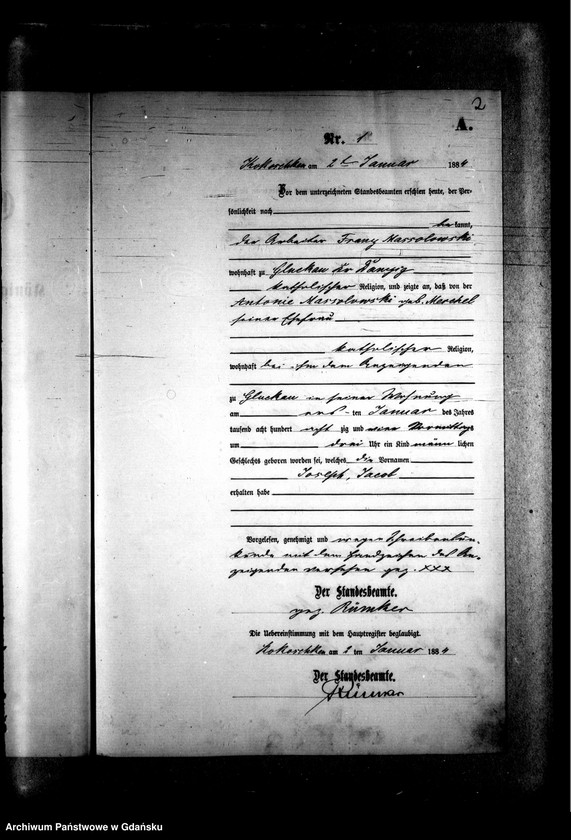 2
A.
Nr. 1
Kokoschken am 2t Januar 1884
Vor dem unterzeichneten Standesbeamten erschien heute, der Per-
sönlichkeit nach
bekannt,
der Arbeiter Franz Massolowski
wohnhaft zu Gluckau Kr Danzig
katholischer Religion, und zeigte an, daß von der
Antonie Massolowski geb.
seiner Ehefrau
katholischer Religion,
wohnhaft bei ihm dem Anzeigenden
zu Gluckau in seiner Wohnung
am ersten Januar des Jahres
tausend acht hundert achtzig und vier Vormittags
um drei Uhr ein Kind männlichen
Geschlechts geboren worden sei, welches die Vornamen
Joseph, Jacob
erhalten habe
Vorgelesen, genehmigt und wegen Schreibensun-
kunde mit dem Handzeichen des An-
zeigenden versehen gez. XXX
Der Standesbeamte.
gez. Rümker
Die Uebereinstimmung mit dem Hauptregister beglaubigt.
Kokoschken am 2 ten Januar 1884
Der Standesbeamte.
Rümker
Archiwum Państwowe w Gdańsku